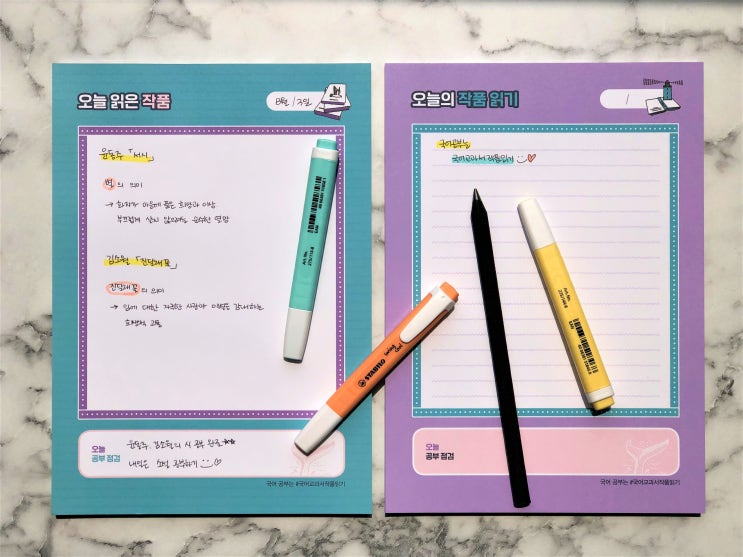 오늘 읽은 작품
8월 / 3일
윤동주 「서시」
별의 의미
→ 화자가 마음에 품은 희망과 이상
부끄럽게 살지 않으려는 순수한 열망
김소월 「진달래꽃」
진달래꽃의 의미
→ 임에 대한 지극한 사랑과 이별을 감내하는
희생적 고통
오늘
공부 점검
윤동주, 김소월의 시 공부 완료★★
내일은 소설 공부하기
국어 공부는 #국어교과서작품읽기
STABILO swing cool
Art.No.
275/
EAN
오늘의 작품 읽기
/
국어공부는
국어교과서 작품읽기
Art.No.
EAN
오늘
공부 점검
국어 공부는 #국어교과서작품읽기